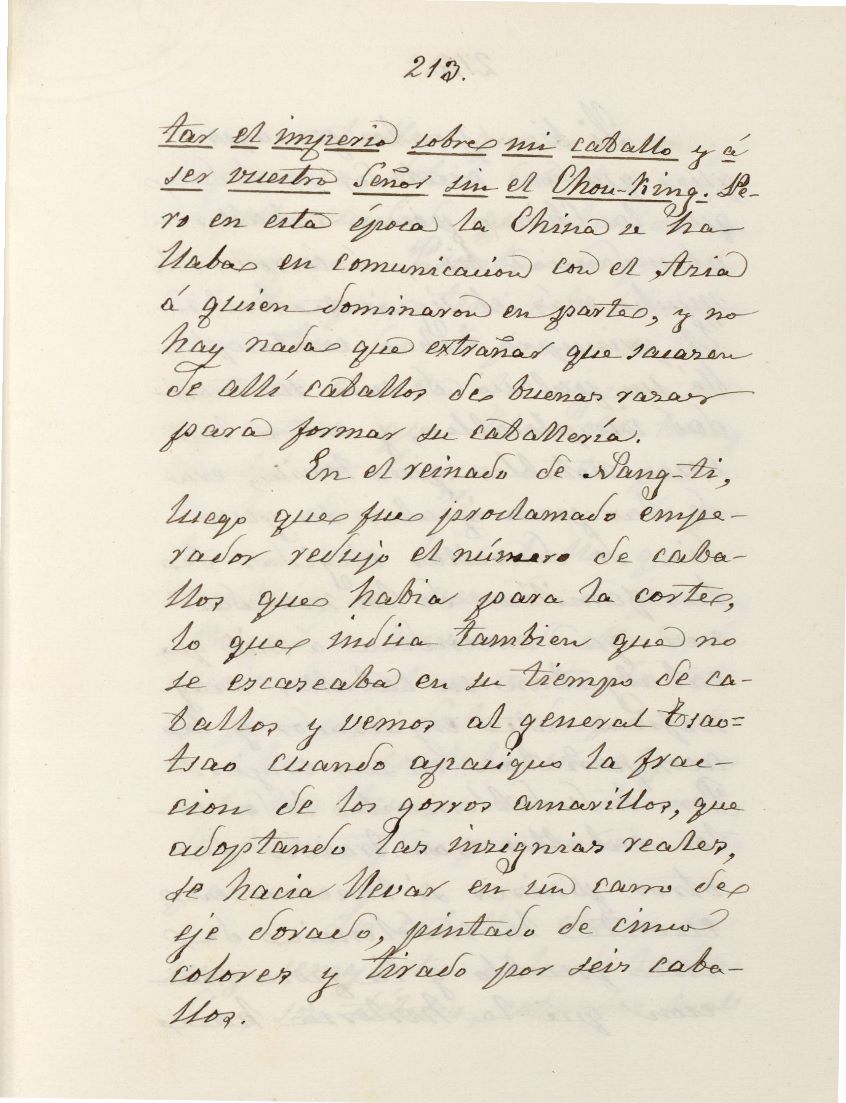 213.
tar el imperio sobre mi caballo y á
ser vuestro Señor sin el Chou-King. Pe-
ro en esta época la China se ha
llaba en comunicacion con el Asia
á quien dominaron en parte, y no
hay nada que extrañar que sacasen
de allí caballos de buenas razas
para formar su caballería.
En el reinado de Yang-ti,
luego que fue proclamado empe-
rador redujo el número de caba-
llos que habia para la corte,
lo que indica tambien que no
se escaseaba en su tiempo de ca-
ballos y vemos al general Tsao-
tsao cuando apaciguo la frac-
cion de los gorros amarillos, que
adoptando las insignias reales,
se hacia llevar en un carro de
eje dorado, pintado de cinco
colores y tirado por seis caba-
llos.